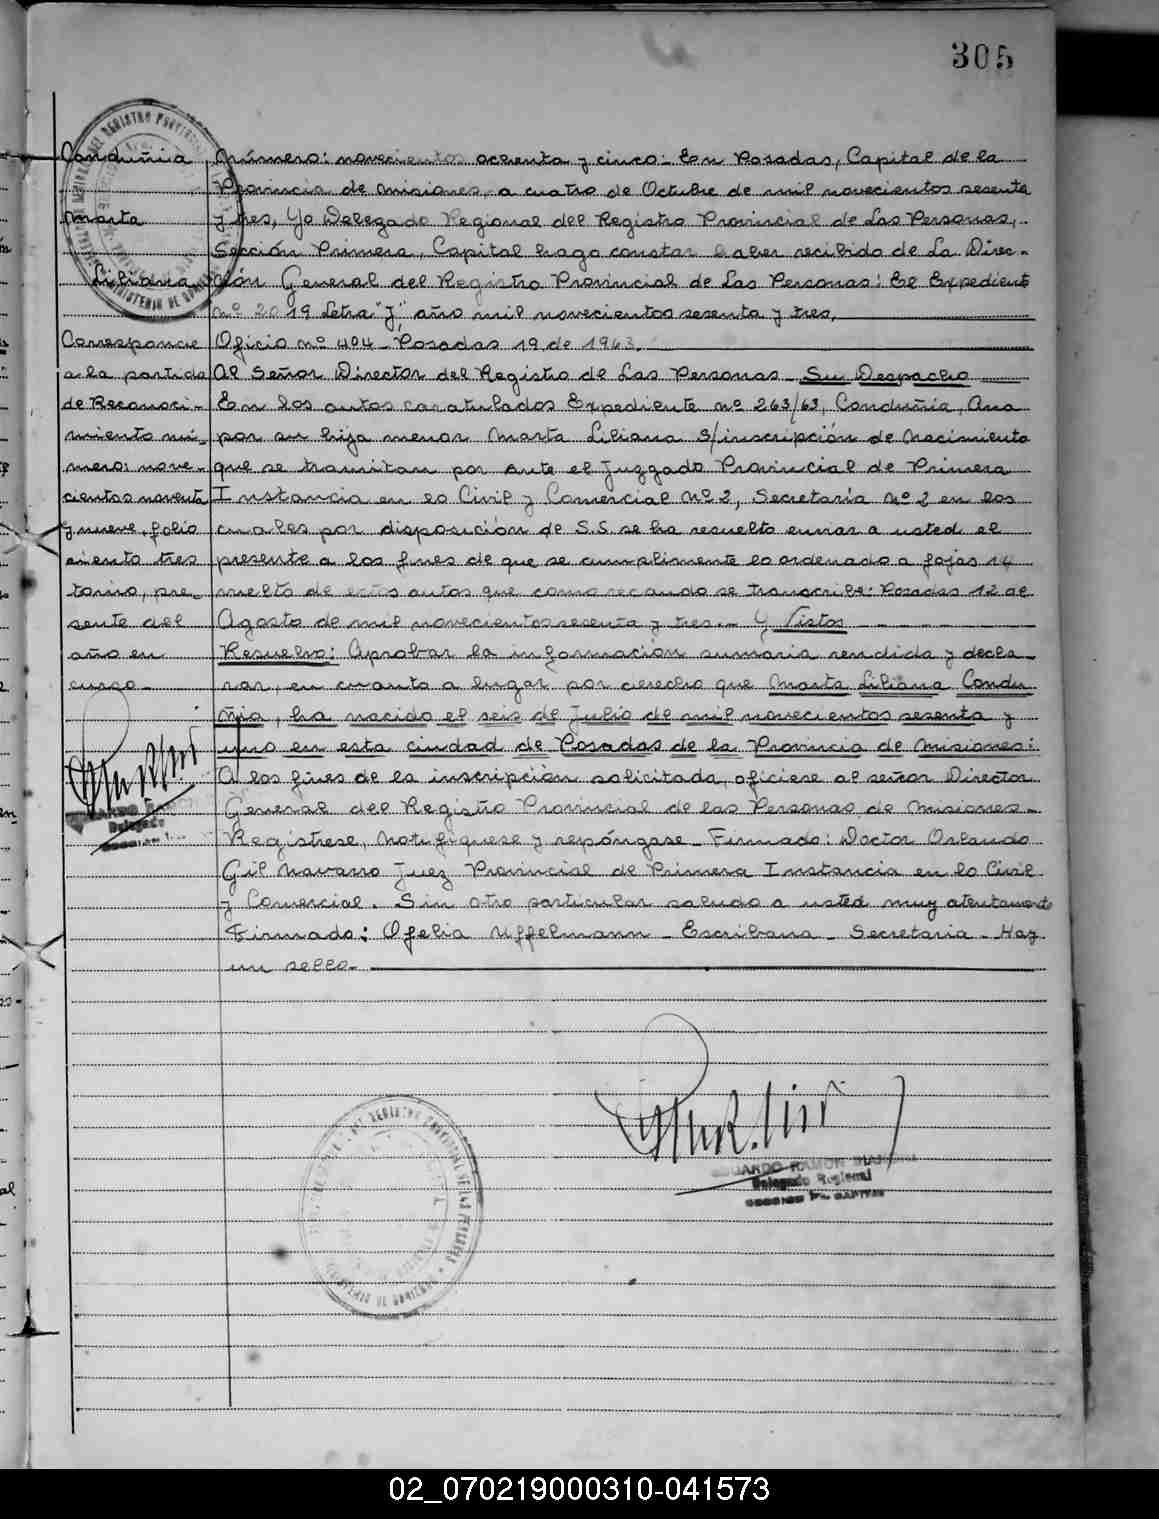 305
Conduñia
Marta
Liliana
Corresponde
a la partida
de Reconoci-
miento nú-
mero: nove-
cientos noventa
y nueve, folio
ciento tres
tomo, pre-
sente del
año en
curso-
Número: novecientos ochenta y cinco- En Posadas, Capital de la
Provincia de Misiones, a cuatro de Octubre de mil novecientos sesenta
y tres, Yo Delegado Regional del Registro Provincial de Las Personas,
Sección Primera, Capital hago constar haber recibido de La Direc-
ción General del Registro Provincial de Las Personas: El Expediente
nº 2019 Letra "J", año mil novecientos sesenta y tres.
Oficio nº 404- Posadas 19 de 1963.
Al Señor Director del Registro de Las Personas- Su Despacho
En los autos caratulados Expediente nº 263/63, Conduñia, Ana
por su hija menor Marta Liliana S/inscripción de Nacimiento
que se tramitan por ante el Juzgado Provincial de Primera
Instancia en lo Civil y Comercial Nº 2, Secretaría Nº 2 en los
cuales por disposición de S.S. se ha resuelto enviar a usted el
presente a los fines de que se cumplimente lo ordenado a fojas 14
vuelto de estos autos que como recaudo se transcribe: Posadas 12 de
Agosto de mil novecientos sesenta y tres.- Y Vistos
Resuelvo: Aprobar la información sumaria rendida y decla-
rar, en cuanto a lugar por derecho que Marta Liliana Condu-
ñia, ha nacido el seis de Julio de mil novecientos sesenta y
uno en esta ciudad de Posadas de la Provincia de Misiones:
A los fines de la inscripción solicitada, ofíciese al señor Director
General del Registro Provincial de las Personas de Misiones-
Regístrese, Notifíquese y repóngase- Firmado: Doctor Orlando
Gil Navarro Juez Provincial de Primera Instancia en lo Civil
y Comercial. Sin otro particular saludo a usted muy atentamente
Firmado: Ofelia Uffelmann- Escribana- Secretaria- Hay
un sello-
EDUARDO RAMON
Delegado Regional
02_070219000310-041573